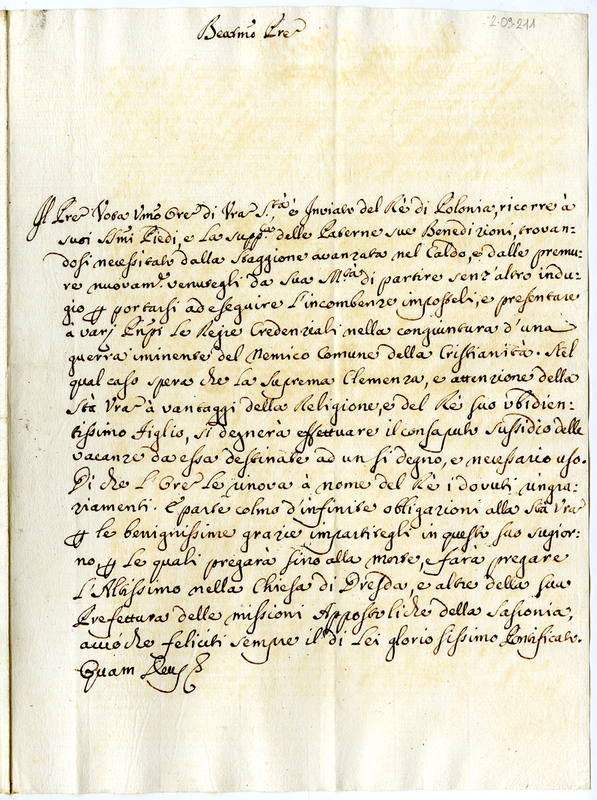 2-09-211
Beatmo Pre
Il Pre Vota Umo Ore di Vra S.tà è Inviato del Rè di Polonia, ricorre à
suoi Ssmi Piedi, e La suppca delle Paterne sue Benedizioni, trovan-
dosi necessitato dalla staggione avanzata nel Caldo, e dalle premu-
re nuovamte venutegli da Sua Mtà di partire senz'altro indu-
gio p portarsi ad eseguire L'incombenze imposteli, e presentare
à varj Pnpi Le Regie Credenziali nella congiuntura d'una
guerra iminente del Nemico Comune della Cristianità. Nel
qual caso spera che La Suprema Clemenza, e attenzione della
Stà Vra à vantaggi della Religione, e del Rè suo ubidien-
tissimo figlio, si degnerà effettuare il consaputo sussidio delle
vacanze da essa destinate ad un si degno, e necessario uso.
Di che L'Ore Le rinova à nome del Rè i dovuti ringra-
ziamenti. E parte colmo d'infinite obligazioni alla Stà Vra
p le benignissime grazie impartitegli in questo suo sogior-
no, p Le quali pregarà sino alla morte, e farà pregare
L'Altissimo nella Chiesa di Dresda, e altre della sua
Prefettura delle missioni Appostoliche della Sassonia,
acciò che feliciti sempre il di Lei gloriosissimo Pontificato.
Quam Deus